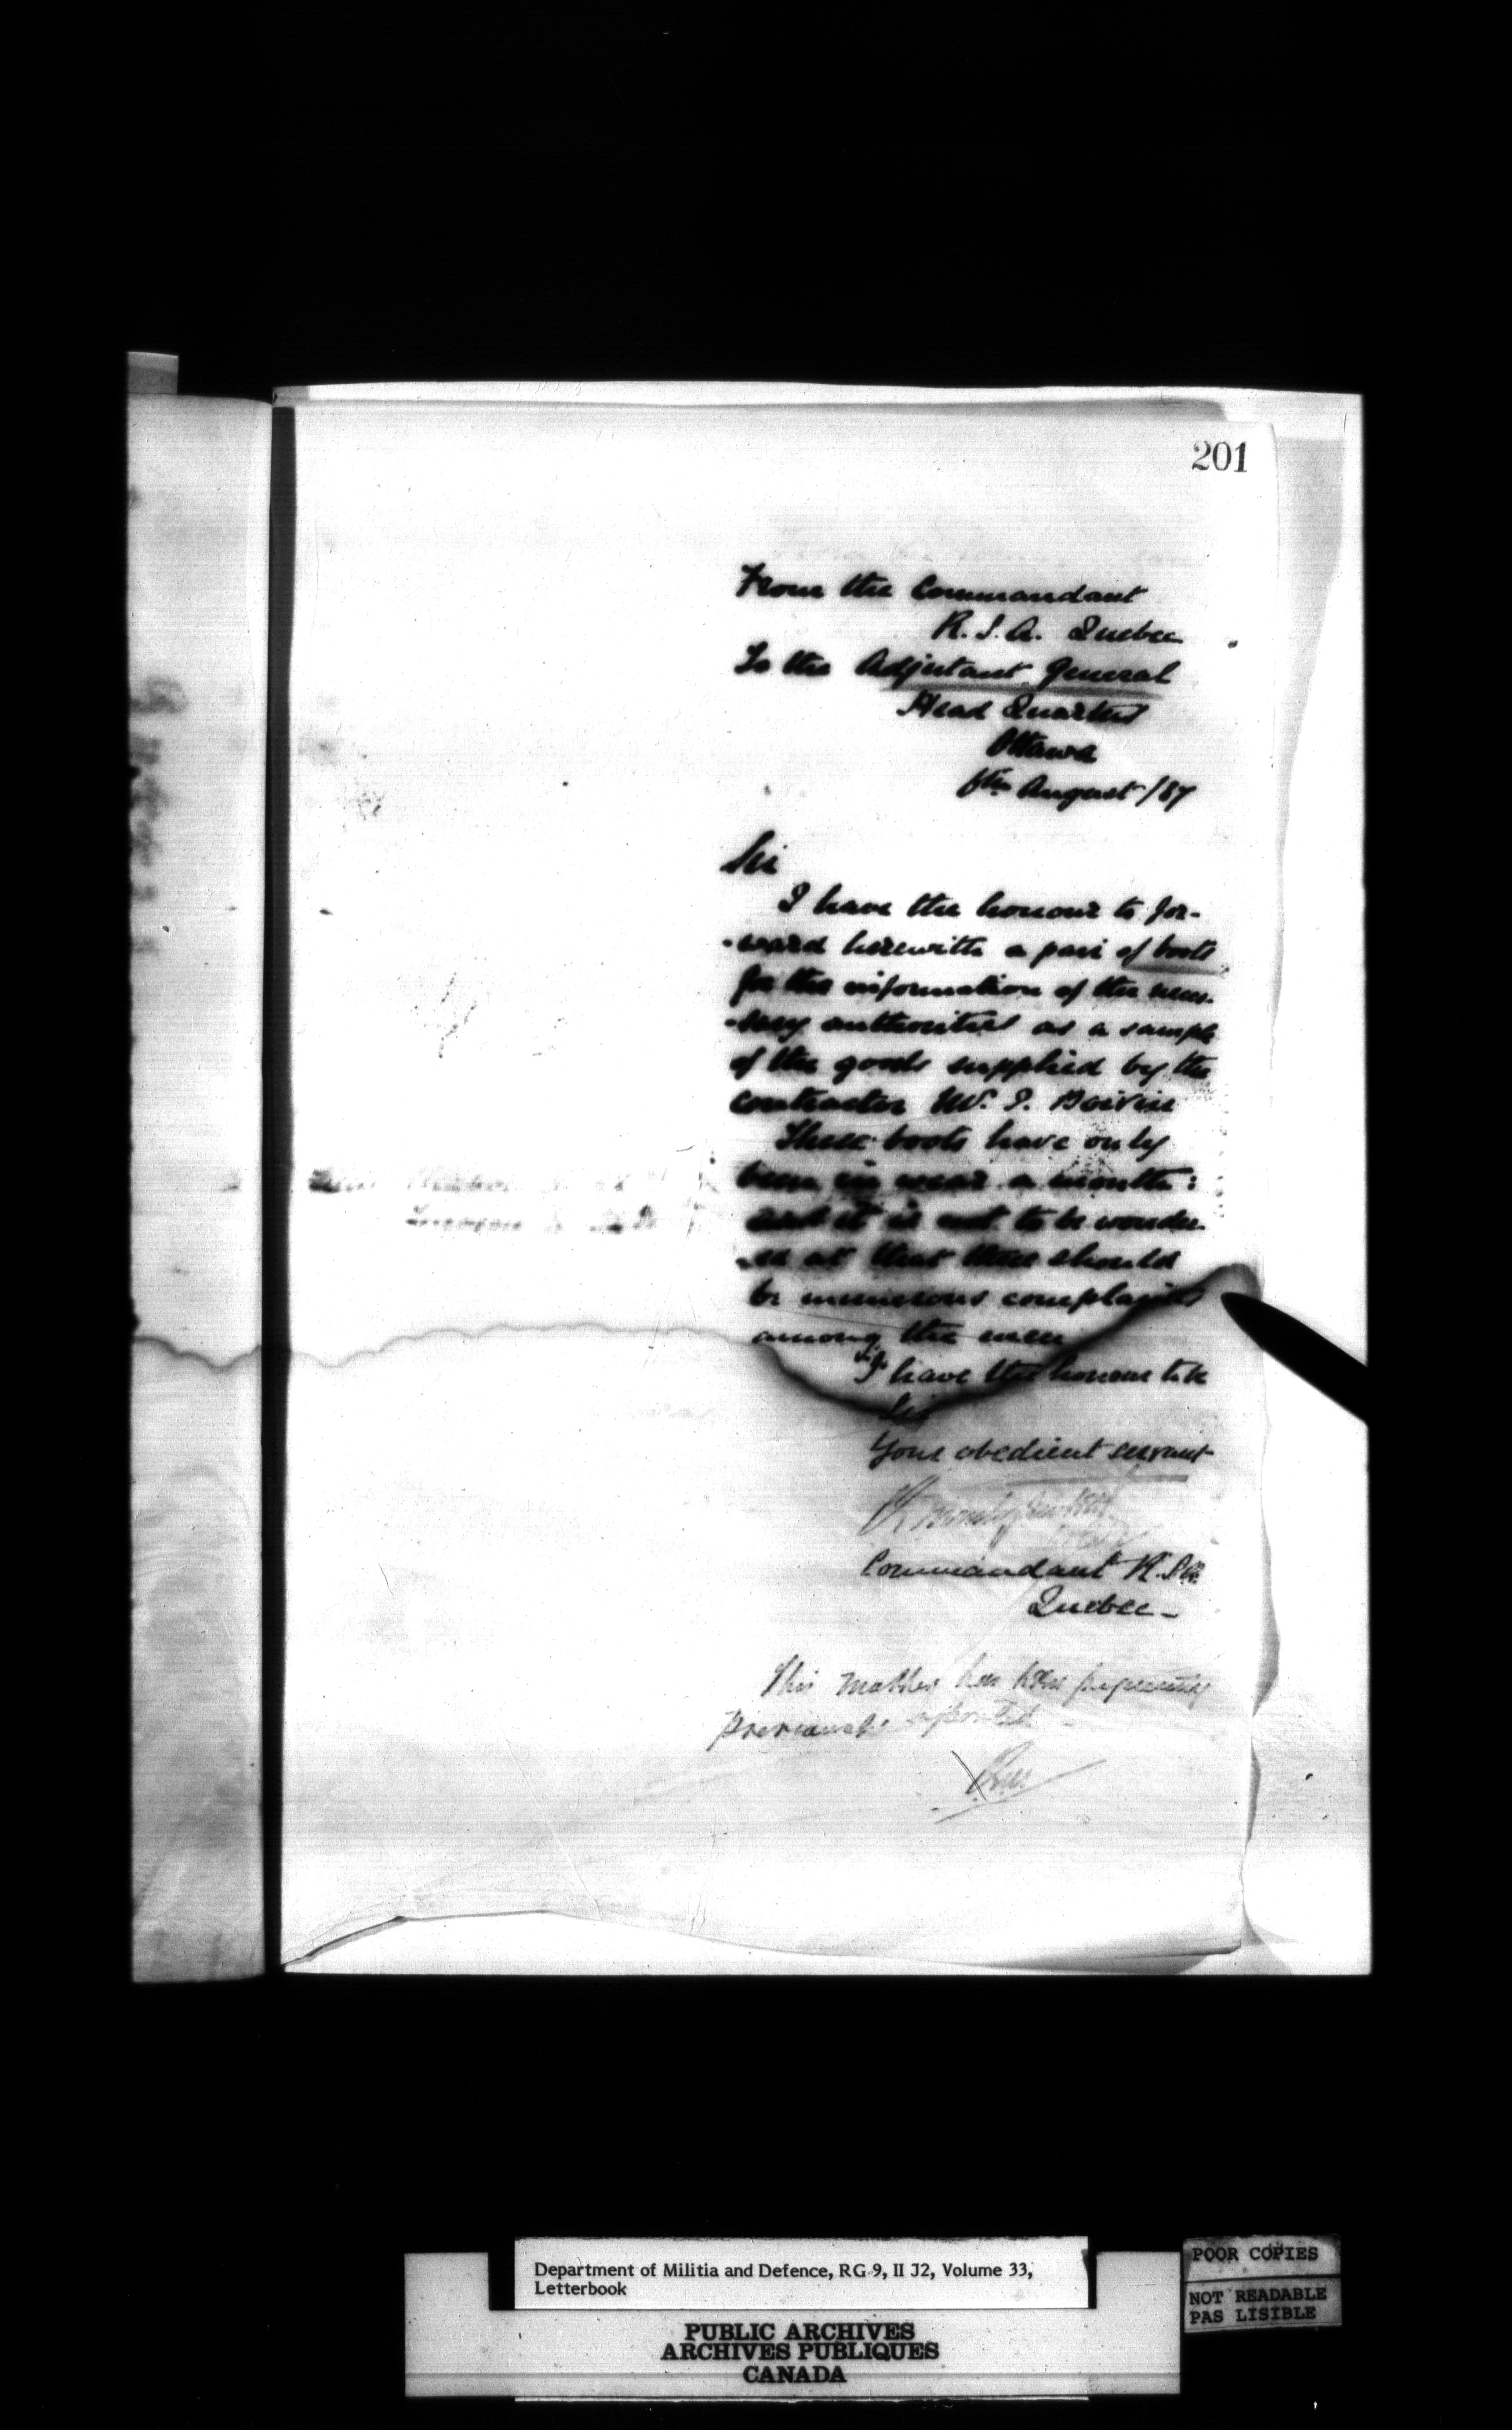 201
From the Commandant
R. S. A. Quebec
To the Adjutant General
Head Quarters
Ottawa
6th August /87
Sir
I have the honour to for-
-ward herewith a pair of boots
for the information of the neces-
-sary authorities as a sample
of the goods supplied by the
contractor W. I. Boivin
These boots have only
been in wear a month:
and it is not to be wonder-
-ed at that there should
be numerous complaints
among the men
I have the honour to be
Sir
Your obedient servant
Commandant R. S. A.
Quebec -
This matter has been frequently
previously reported
Department of Militia and Defence, RG 9, II J2, Volume 33,
Letterbook
PUBLIC ARCHIVES
ARCHIVES PUBLIQUES
CANADA
POOR COPIES
NOT READABLE
PAS LISIBLE